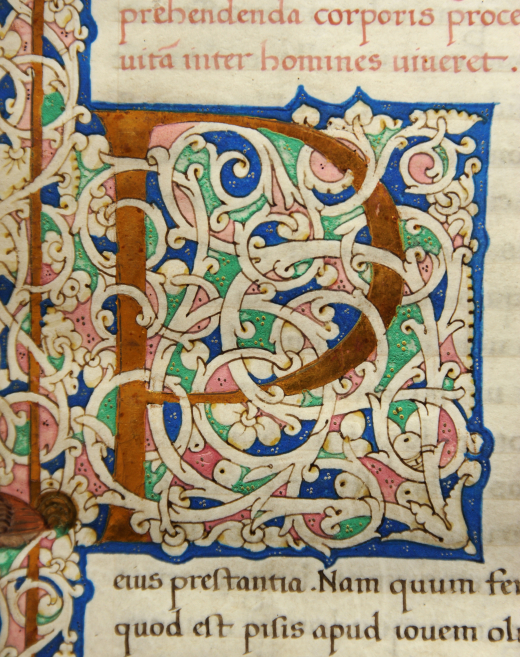 prehendenda corporis proce
uitā inter homines uiueret.
P
eius prestantia. Nam quum fer
quod est pisis apud iouem ol